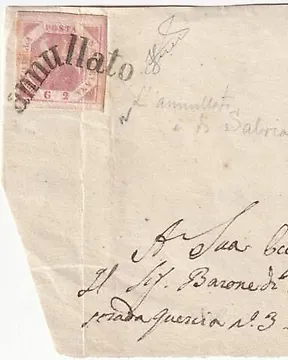 POSTA
annullato
G 2
L'annullato
è di Salvia
A Sua
Il Sig. Barone di
strada quercia nº. 3